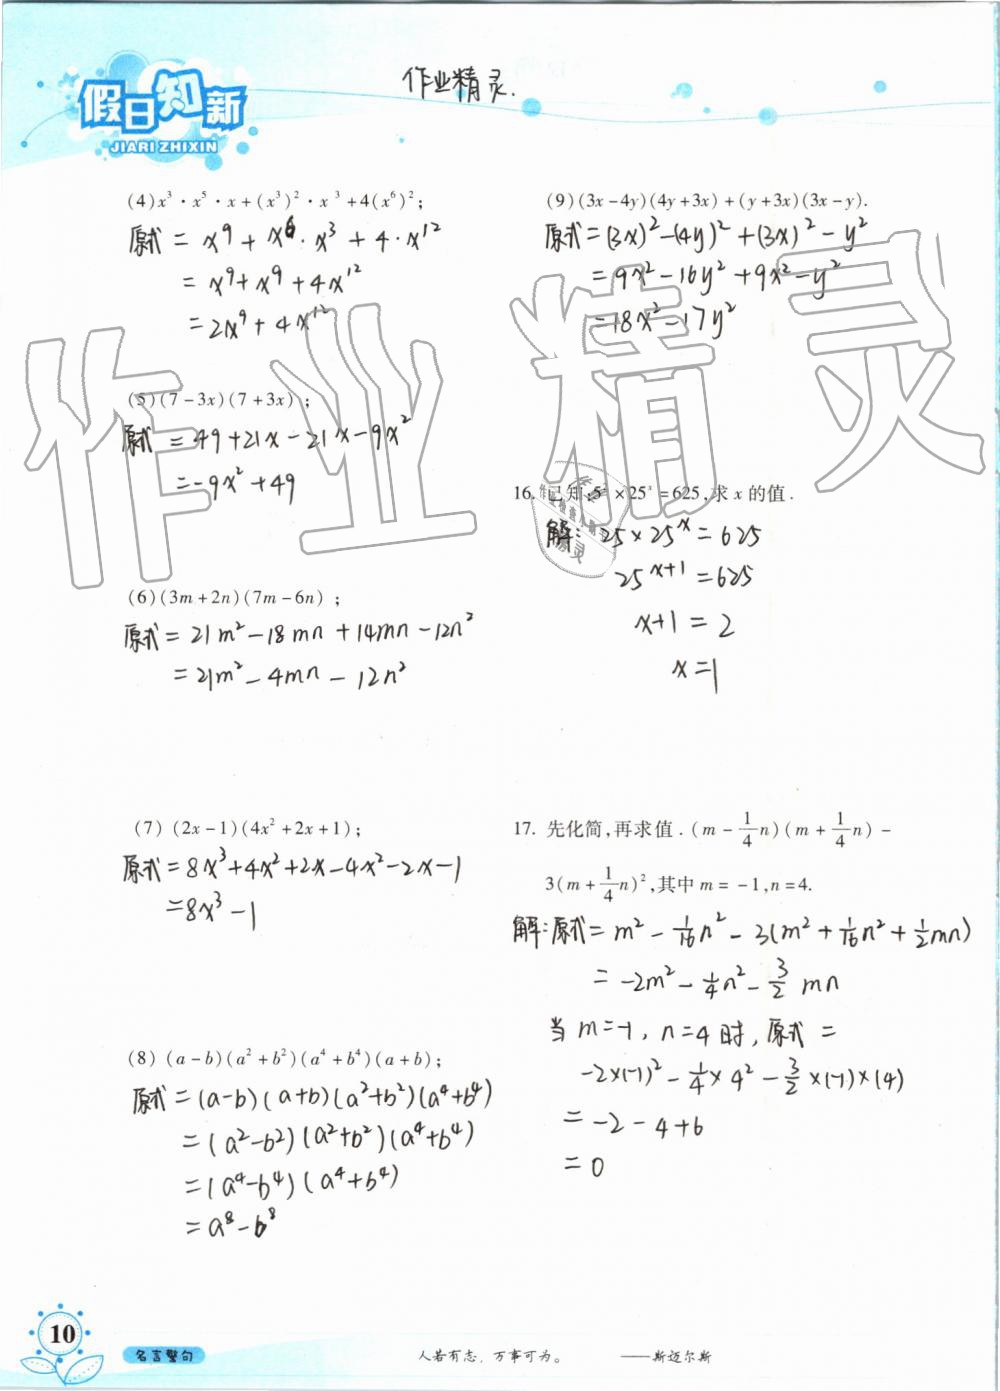 假日知新
JIARI ZHIXIN
作业精灵.
(4) x³·x⁵·x+(x³)²·x³+4(x⁶)²;
原式 = x⁹+x⁶·x³+4·x¹²
= x⁹+x⁹+4x¹²
= 2x⁹+4x¹²
(5)(7-3x)(7+3x);
原式 = 49+21x-21x-9x²
= -9x²+49
(6)(3m+2n)(7m-6n);
原式 = 21m²-18mn+14mn-12n²
= 21m²-4mn-12n²
(7) (2x-1)(4x²+2x+1);
原式 = 8x³+4x²+2x-4x²-2x-1
= 8x³-1
(8) (a-b)(a²+b²)(a⁴+b⁴)(a+b);
原式 = (a-b)(a+b)(a²+b²)(a⁴+b⁴)
= (a²-b²)(a²+b²)(a⁴+b⁴)
= (a⁴-b⁴)(a⁴+b⁴)
= a⁸-b⁸
(9)(3x-4y)(4y+3x)+(y+3x)(3x-y).
原式 = (3x)²-(4y)²+(3x)²-y²
= 9x²-16y²+9x²-y²
= 18x²-17y²
16. 已知:5²×25ˣ=625,求 x 的值.
解: 25×25ˣ=625
25ˣ⁺¹=625
x+1=2
x=1
17. 先化简,再求值.(m-1/4n)(m+1/4n)-
3(m+1/4n)²,其中 m=-1,n=4.
解:原式 = m²-1/16n²-3(m²+1/16n²+1/2mn)
= -2m²-1/4n²-3/2mn
当 m=-1, n=4时, 原式 =
-2×(-1)²-1/4×4²-3/2×(-1)×(4)
= -2-4+6
= 0
作业精灵
10
名言警句
人若有志，万事可为。 ——斯迈尔斯